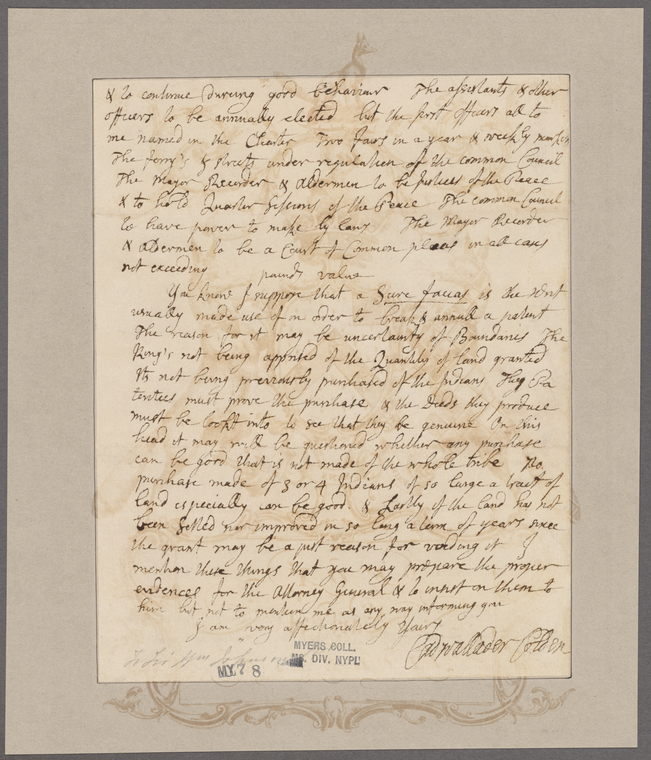 & to continue during good behaviour The assistants & other
officers to be annually elected but the first officers all to
me named in the Charter Two fairs in a year & weekly market
The ferry's & streets under regulation of the common Council
The Mayor Recorder & Aldermen to be Justices of the Peace
& to hold Quarter Sessions of the Peace The common Council
to have power to make by laws The Mayor Recorder
& Aldermen to be a Court of Common pleas in all cases
not exceeding pounds value
You know I suppose that a Scire facias is the writ
usually made use of in order to break & annull a patent
The reason for it may be uncertainty of Boundaries The
King's not being apprised of the Quantity of land granted
Its not being previously purchased of the Indians They Pa
tentees must prove the purchase & the Deeds they produce
must be lookt into to see that they be genuine On this
head it may well be questioned whether any purchase
can be good that is not made of the whole tribe No
purchase made of 3 or 4 Indians of so large a tract of
land especially can be good & Lastly if the land has not
been Setled nor improved in so long a term of years since
the grant may be a just reason for voiding it I
mention these things that you may prepare the proper
evidences for the Attorney General & to insist on them to
him but not to mention me as any way informing you
I am very affectionately Yours
Cadwallader Colden
To Sir Wm Johnson
MYERS COLL.
MS. DIV. NYPL
MY 78